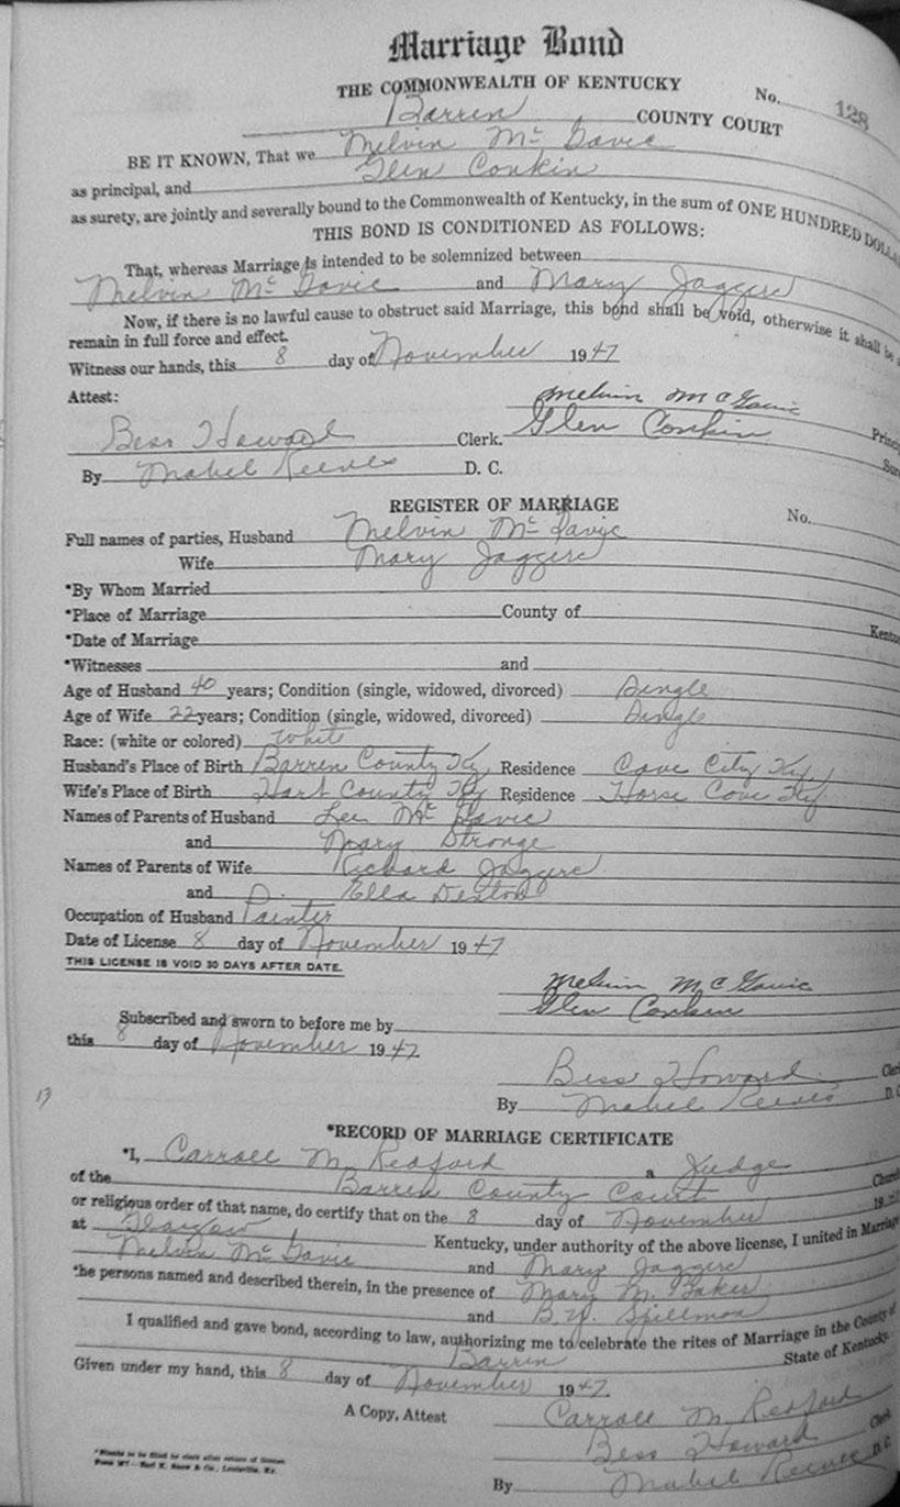 Marriage Bond
THE COMMONWEALTH OF KENTUCKY
No. 128
Barren COUNTY COURT
BE IT KNOWN, That we Melvin Mc Gavic
as principal, and Glen Conkin
as surety, are jointly and severally bound to the Commonwealth of Kentucky, in the sum of ONE HUNDRED DOLLA
THIS BOND IS CONDITIONED AS FOLLOWS:
That, whereas Marriage is intended to be solemnized between
Melvin Mc Gavic and Mary Jaggers
Now, if there is no lawful cause to obstruct said Marriage, this bond shall be void, otherwise it shall be
remain in full force and effect.
Witness our hands, this 8 day of November 1947
Attest:
Melvin McGavic
Princi
Bess Howard Clerk. Glen Conkin
Sur
By Mabel Reeves D. C.
REGISTER OF MARRIAGE
No.
Full names of parties, Husband Melvin Mc Gavic
Wife Mary Jaggers
*By Whom Married
*Place of Marriage County of Kentuc
*Date of Marriage
*Witnesses and
Age of Husband 40 years; Condition (single, widowed, divorced) Single
Age of Wife 22 years; Condition (single, widowed, divorced) Single
Race: (white or colored) White
Husband's Place of Birth Barren County Ky Residence Cave City Ky,
Wife's Place of Birth Hart County Ky Residence Horse Cave Ky
Names of Parents of Husband Lee Mc Gavic
and Mary Stronge
Names of Parents of Wife Richard Jaggers
and Ella Denton
Occupation of Husband Painter
Date of License 8 day of November 1947
THIS LICENSE IS VOID 30 DAYS AFTER DATE.
Melvin McGavic
Glen Conkin
Subscribed and sworn to before me by
this 8 day of November 1947
Bess Howard Cler
By Mabel Reeves D.C
13
*RECORD OF MARRIAGE CERTIFICATE
*I, Carroll M. Redford a Judge
of the Barren County Court Church
or religious order of that name, do certify that on the 8 day of November 19
at Glasgow, Kentucky, under authority of the above license, I united in Marriage
Melvin Mc Gavic and Mary Jaggers
the persons named and described therein, in the presence of Mary M. Baker
and B. W. Spillman
I qualified and gave bond, according to law, authorizing me to celebrate the rites of Marriage in the County of
Barren State of Kentucky.
Given under my hand, this 8 day of November 1947.
Carroll M Redford
A Copy, Attest
Bess Howard Clerk
By Mabel Reeves D.C.
*Blanks to be filled by clerk after return of license.